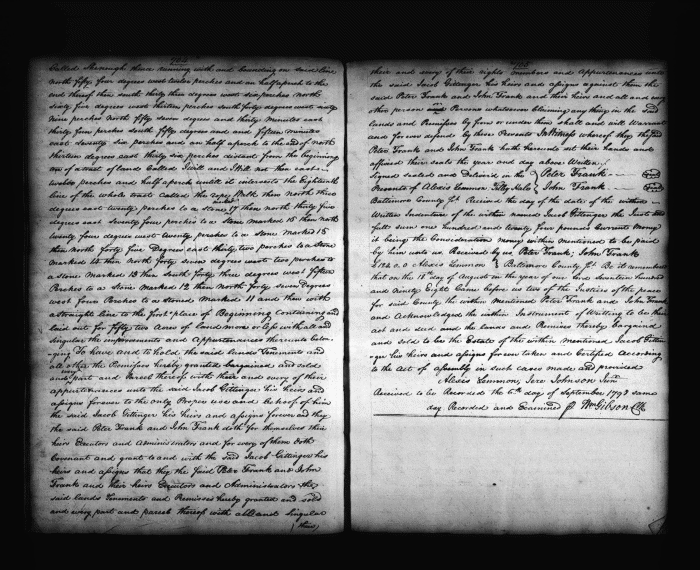 Called Strength thence running with and bounding on said line
north fifty four degrees west twelve perches and an half a perch to the
end thereof then south thirty three degrees west six perches north
sixty five degrees west thirteen perches south forty degrees west ninty
nine perches north fifty seven degrees and thirty minutes east
thirty four perches south fifty degrees and and fifteen minutes
east seventy six perches and an half a perch to the end of north
thirteen degrees east thirty six perches distant from the beginning
on of a tract of land Called I will and I Will not then east
twelve perches and half a perch until it intersects the Eighteenth
line of the whole tract called the then north three
degrees east twenty perches to a stone 17 then north thirty five
degrees east seventy four perches to a stone Marked 16 then north
twenty four degrees west twenty perches to a stone Marked 15
then North forty five Degrees East thirty two perches to a Stone
marked 14 then north forty seven degrees west two perches to
a stone Marked 13 then South forty three degrees west fifteen
Perches to a stone Marked 12 then North forty seven Degrees
west four Perches to a Stone Marked 11 and then with
a straight line to the first place of Beginning Containing and
laid out for fifty two Acres of land more or less with all and
singular the improvements and Appurtenances thereunto belon-
ging To have and to hold the said lands Tenements and
all other the Premises hereby granted bargained and sold
and every part and Parcel thereof with their and every of their
appurtenances unto the said Jacob Gittinger his heirs and
assigns forever to the only Proper use and be hoof of him
the said Jacob Gittinger his heirs and assigns forever and they
the said Peter Frank and John Frank doth for themselves their
heirs Executors and Administrators and for every of them doth
Covenant and grant to and with the said Jacob Gittinger his
heirs and assigns that they the said Peter Frank and John
Frank and their heirs Executors and Administrators the
said lands Tenements and Premisses hereby granted and sold
and every part and parcel thereof with all and Singular
their
their and every of their rights members and appurtenances unto
the said Jacob Gittinger his heirs and assigns against them the
said Peter Frank and John Frank and their heirs and all and every
other person and Persons whatsoever Claiming any thing in the said
lands and Premises by from or under them shall and will Warrant
and forever defend by these Presents In Witness whereof they the said
Peter Frank and John Frank hath hereunto set their hands and
affixed their seals the year and day above Written
Signed sealed and Delivered in the Peter Frank Seal
Presents of Alexis Lemmon John Frank Seal
Baltimore County Received the day of the date of the within
Written Indenture of the within named Jacob Gittinger the Just
full sum one hundred and twenty four pounds Current Money
it being the Consideration money within mentioned to be paid
by him unto us. Received by us Peter Frank, John Frank
£124.0.0 Alexis Lemmon Baltimore County Be it remembered
that on the 18th day of August in the year of our Lord Seventeen hundred
and Ninety Eight Came before us two of the Justices of the peace
for said County the within Mentioned Peter Frank and John Frank
and Acknowledged the within Instrument of Writing to be their
act and deed and the lands and Premises thereby Bargained
and sold to be the Estate of the within Mentioned Jacob Gittin-
ger his heirs and assigns forever taken and Certified According
to the Act of Assembly in such cases made and provided
Alexis Lemmon, Jere Johnson Jun
Received to be Recorded the 6th day of September 1798 same
day Recorded and Examined Wm Gibson Clk